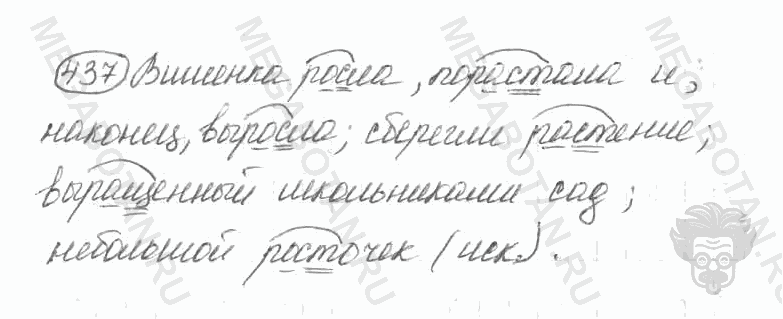 437 Вишенка росла, порастала и,
наконец, выросла; сберегли растение;
выращенный школьниками сад;
небольшой росточек (иск.).
MEGABOTAN.RU